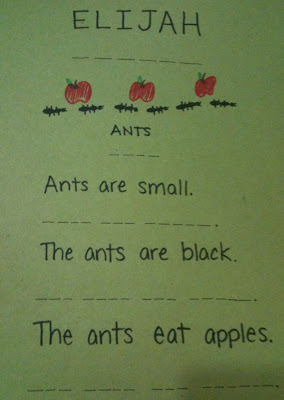 ELIJAH
ANTS
Ants are small.
The ants are black.
The ants eat apples.